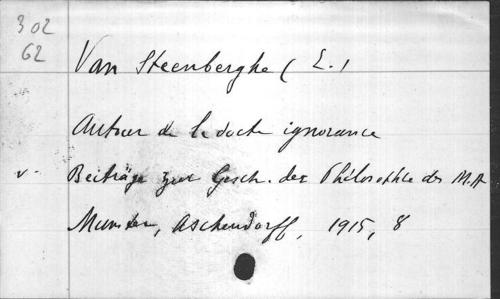 302
62
Van Steenberghe (E.)
Autour de la docte ignorance
v. Beiträge zur Gesch. der Philosophie des M.A
Munster, Aschendorff, 1915, 8